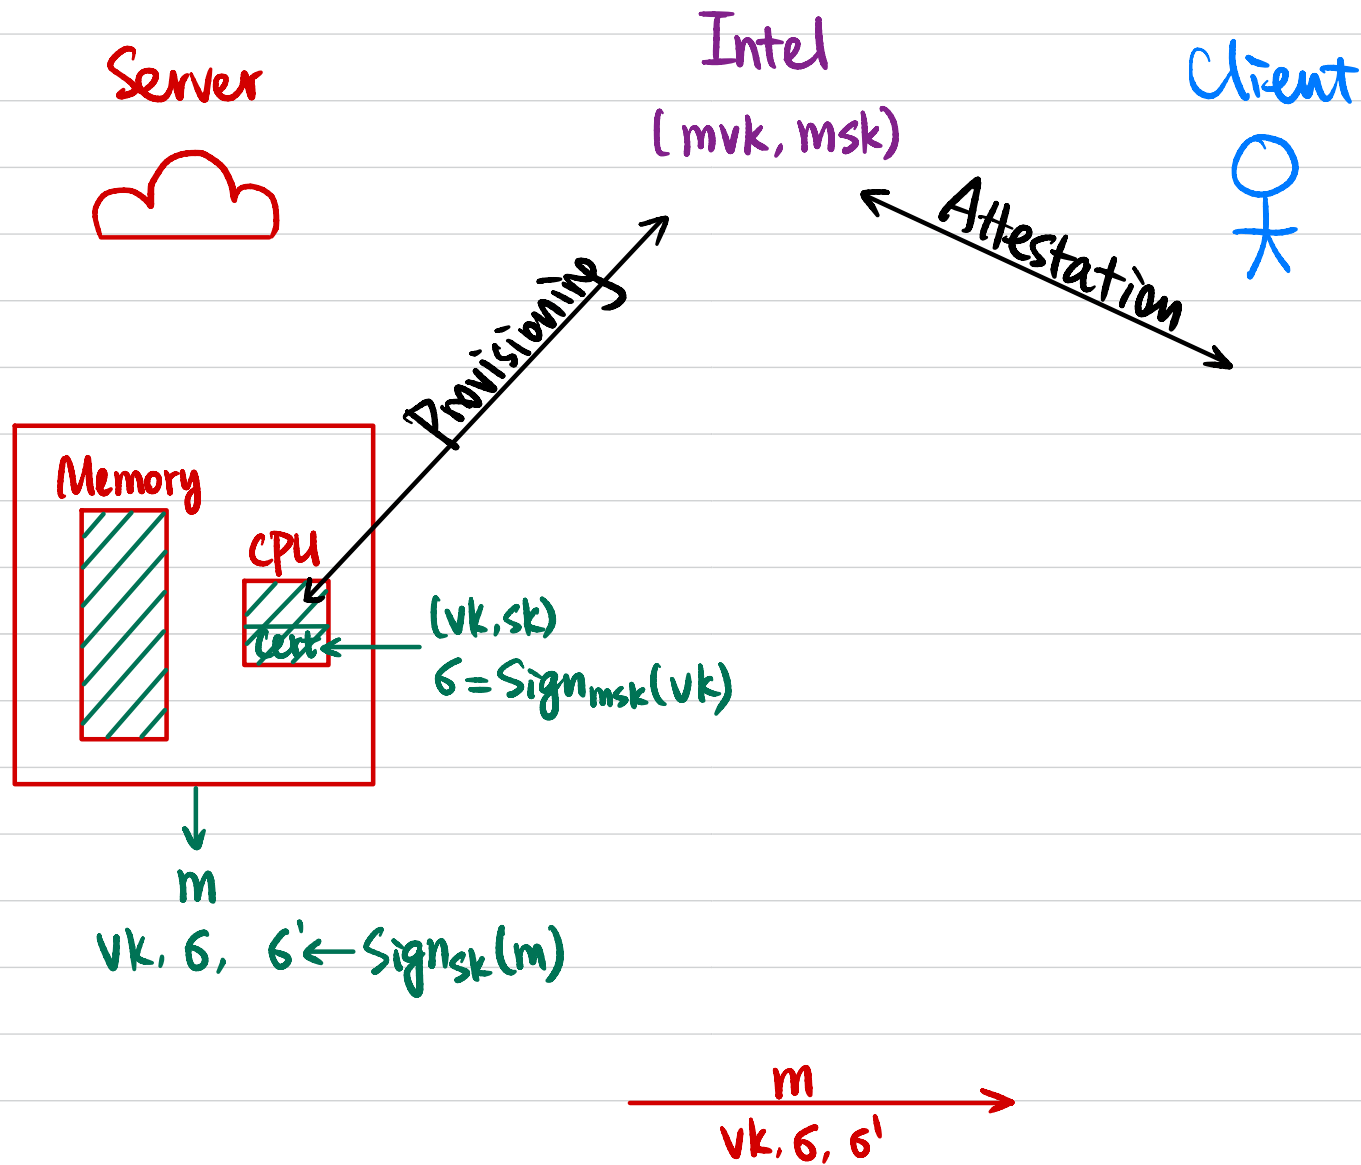 Server
Intel
Client
(mvk, msk)
Attestation
Provisioning
Memory
CPU
Cert
(vk, sk)
σ = Sign_msk(vk)
m
vk, σ, σ' ← Sign_sk(m)
m
vk, σ, σ'